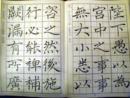 陛下愚以為
宮中之事事
無大小悉以
咨之然後施
行必能裨補
闕漏有所廣